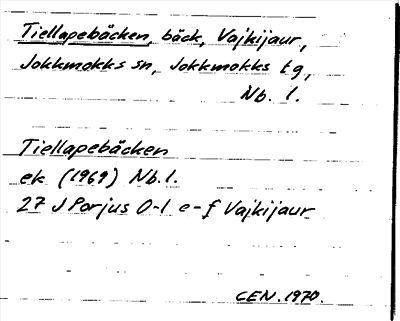 Tiellapebäcken, bäck, Vajkijaur,
Jokkmokks sn, Jokkmokks tg,
Nb. l.
Tiellapebäcken
ek (1969) Nb.l.
27 J Porjus 0-1 e-f Vajkijaur
CEN. 1970.